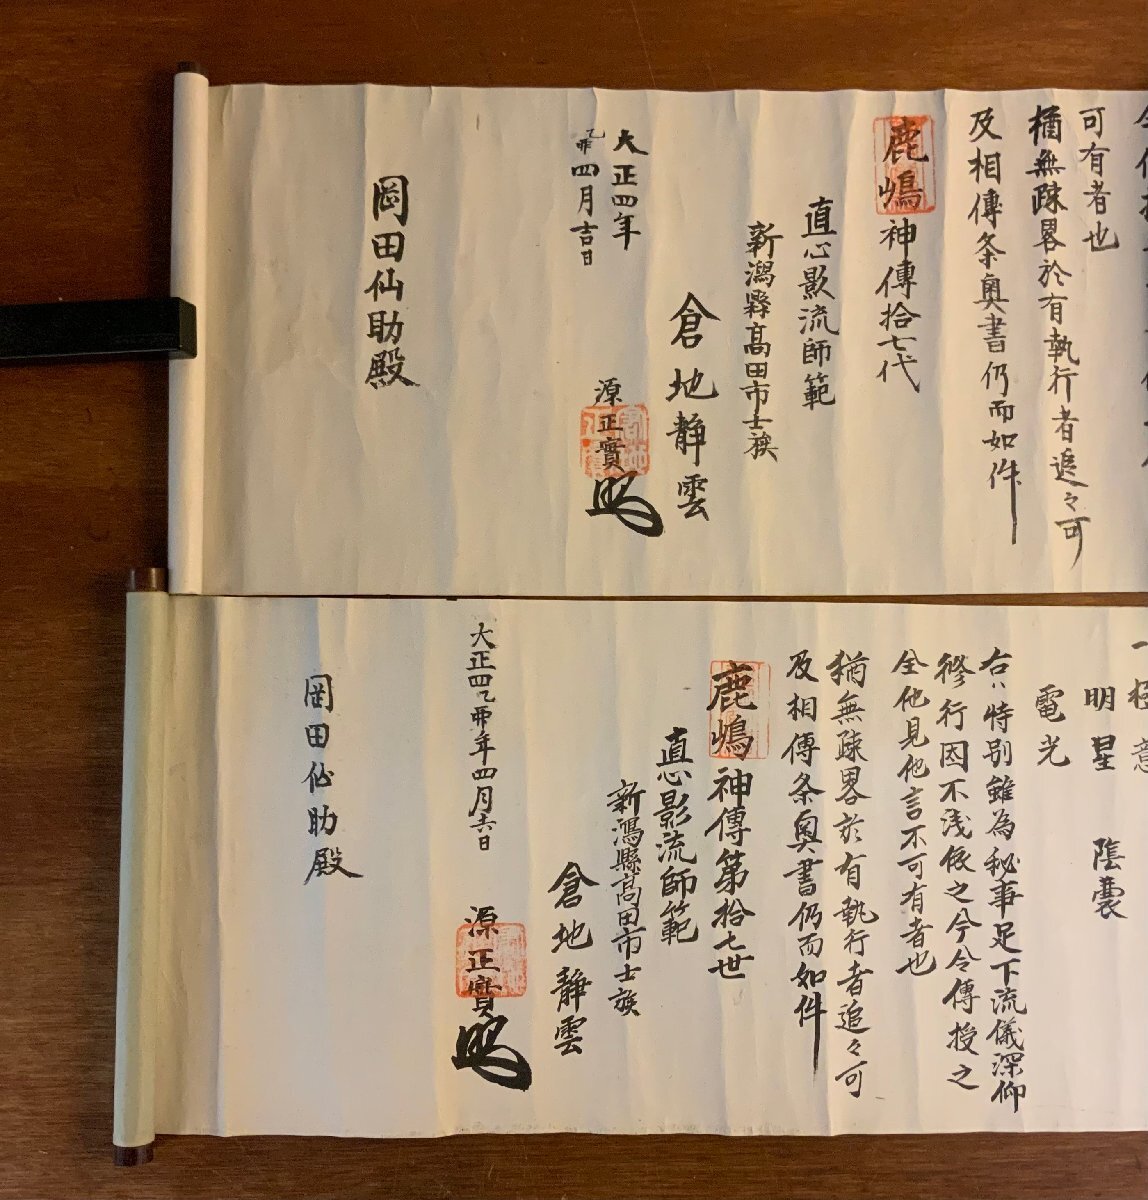 可有者也
猶無疎畧於有執行者追々可
及相傳条奥書仍而如件
鹿嶋神傳拾七代
直心影流師範
新潟縣髙田市士族
倉地静雲
源正實
大正四年
乙卯四月吉日
岡田仙助殿
明星 陰囊
電光
右ハ特別雖為秘事足下流儀深仰
修行因不浅依之今令傳授之
全他見他言不可有者也
猶無疎畧於有執行者追々可
及相傳条奥書仍而如件
鹿嶋神傳第拾七世
直心影流師範
新潟縣髙田市士族
倉地静雲
源正實
大正四乙卯年四月六日
岡田仙助殿